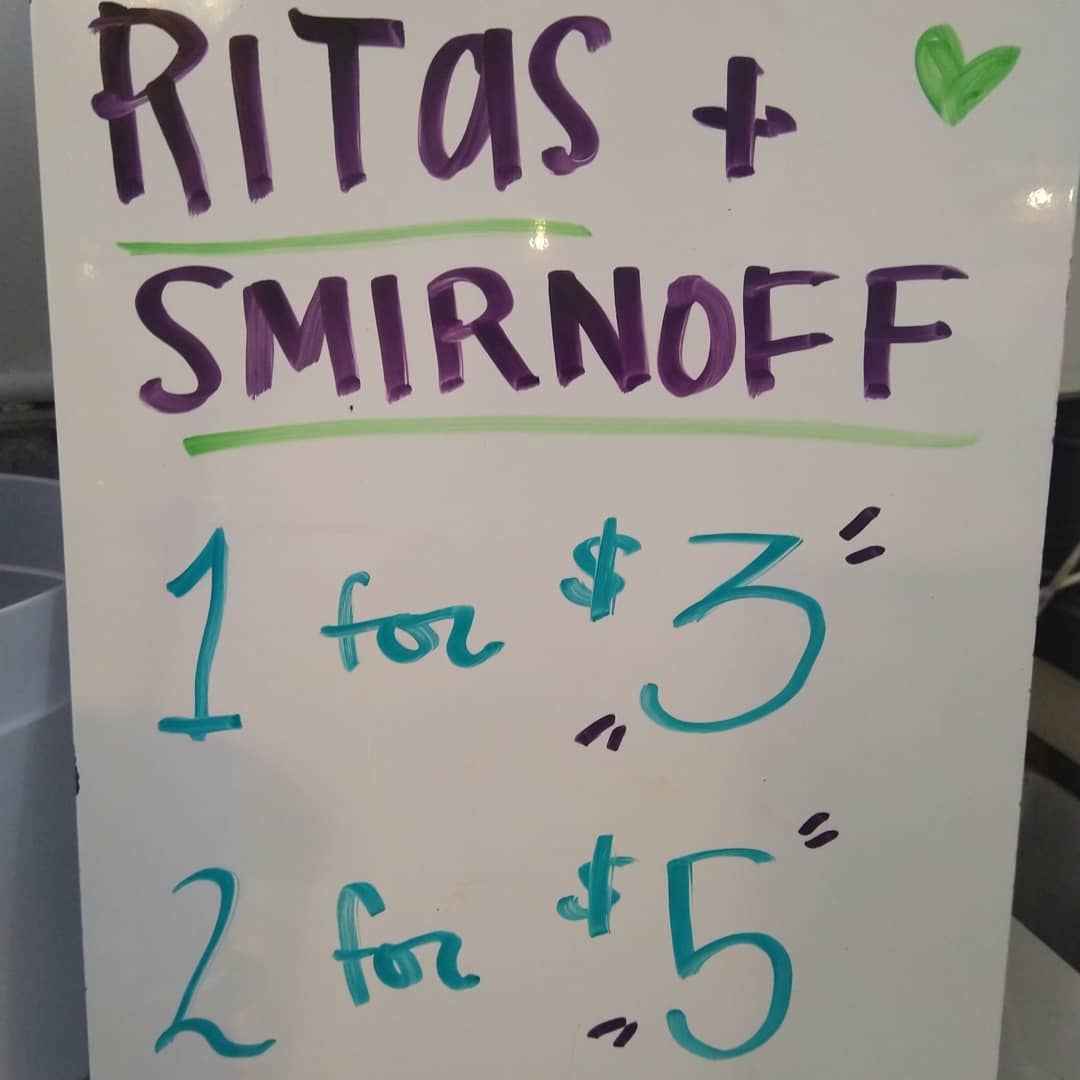 RITaS +
SMIRNOFF
1 for $3
2 for $5